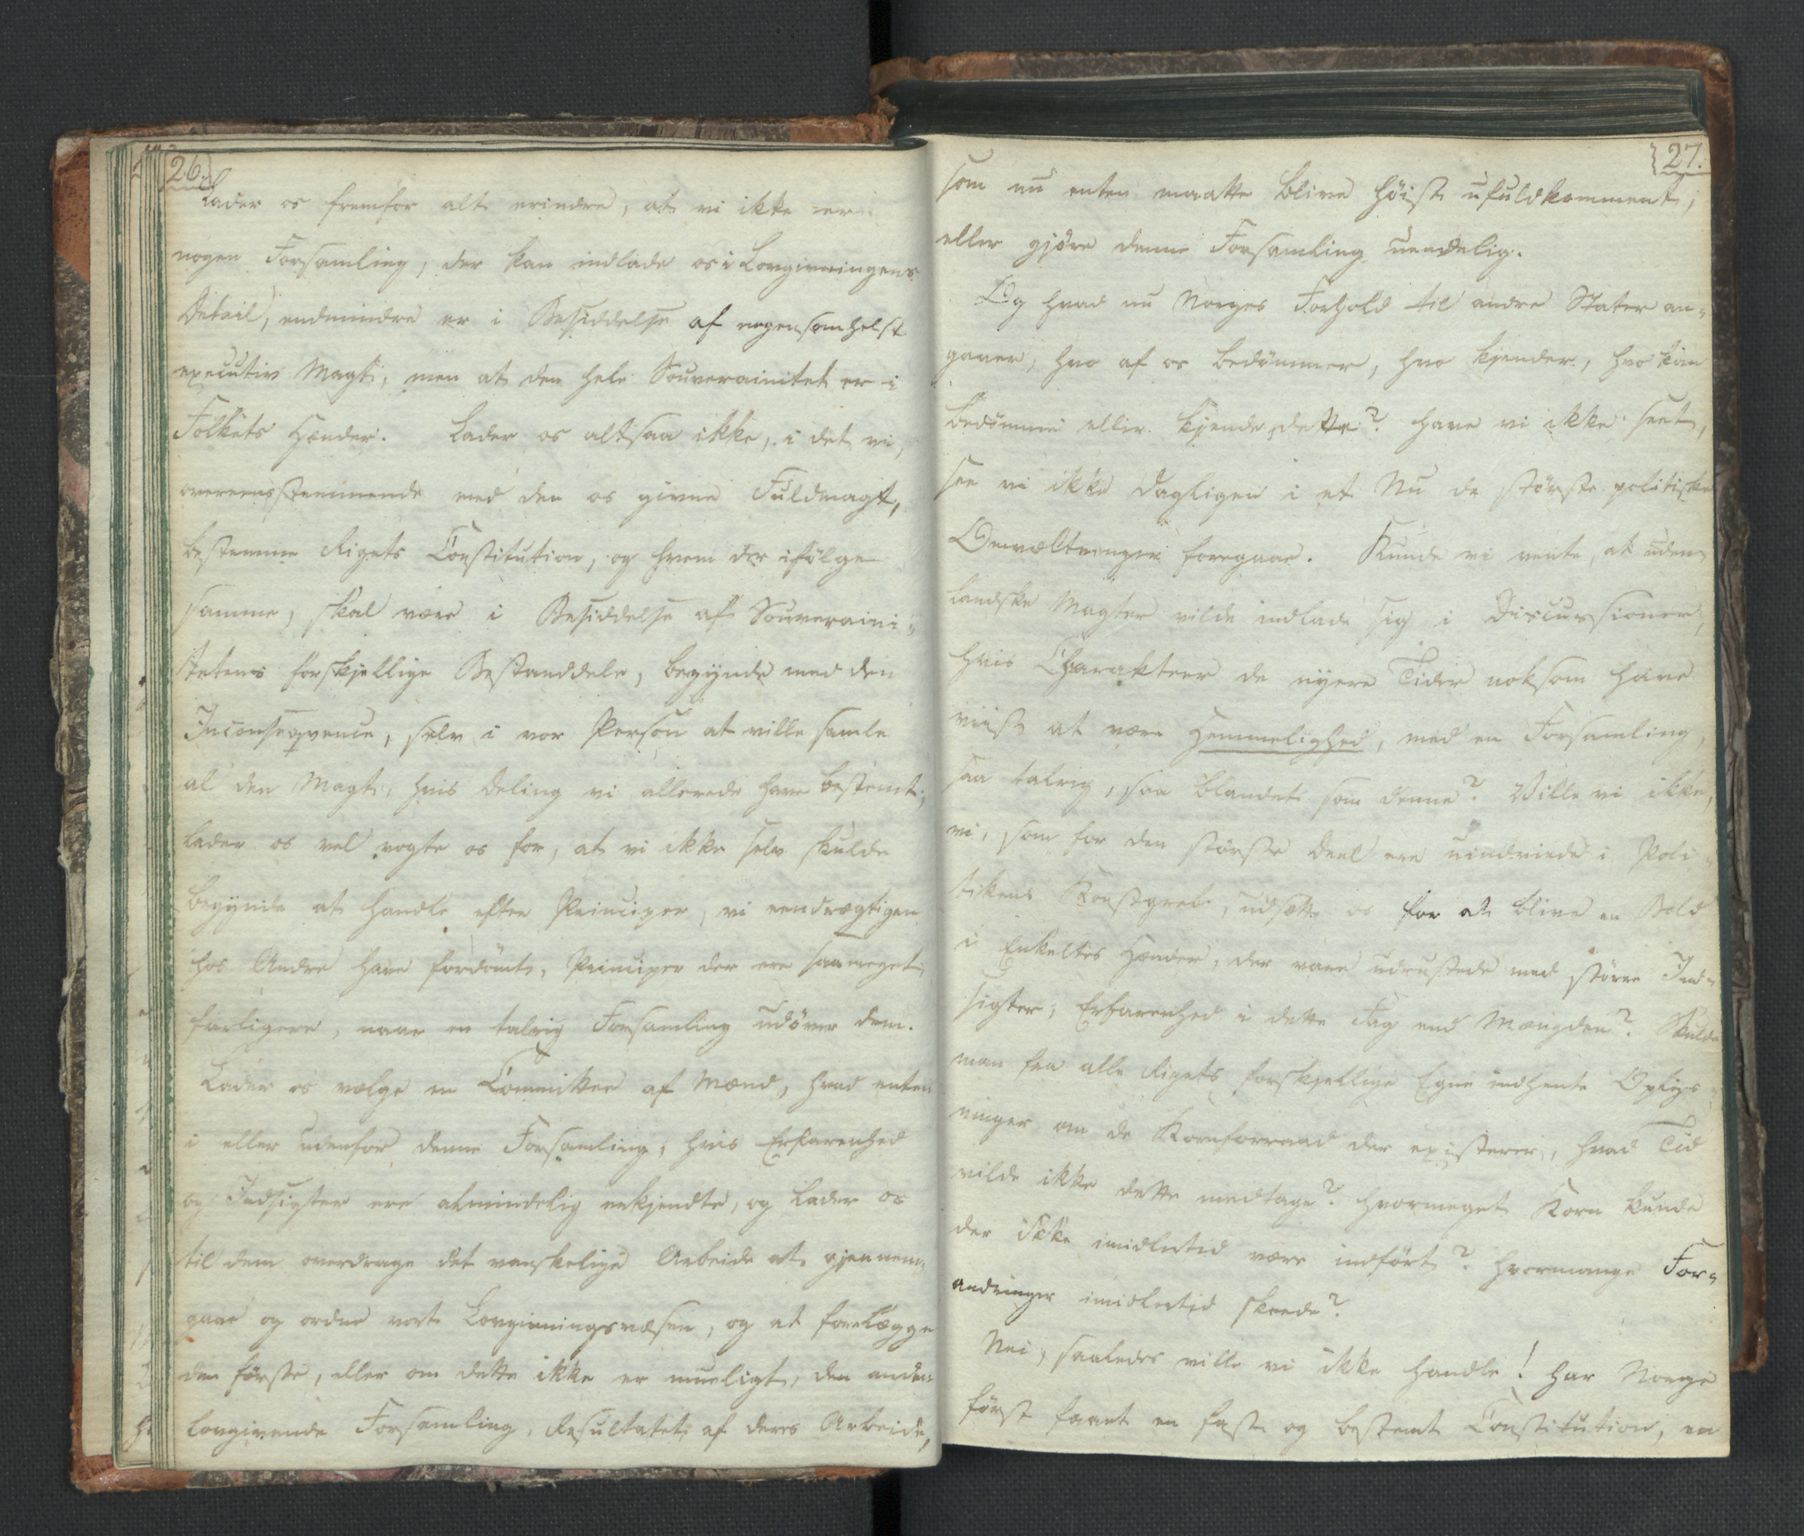 26.
Lader os fremfor alt erindre, at vi ikke ere
nogen Forsamling, der kan indlade os i Lovgivningens
Detail, endmindre er i Besiddelse af nogensomhelst
executiv Magt, men at den hele Souverainitet er i
Folkets Hænder. Lader os altsaa ikke, i det vi,
overeensstemmende med den os givne Fuldmagt,
bestemme Rigets Constitution, og hvem der ifølge
samme, skal være i Besiddelse af Souveraini-
tetens forskjellige Bestanddele, begynde med den
Inconseqvence, selv i vor Person at ville samle
al den Magt, hvis Deling vi allerede have bestemt;
lader os vel vogte os for, at vi ikke selv skulde
begynde at handle efter Principer, vi eendrægtigen
hos Andre have fordømt, Principer der ere saameget
farligere, naar en talrig Forsamling udøver dem.
Lader os vælge en Committee af Mænd, hvad enten
i eller udenfor denne Forsamling, hvis Erfarenhed
og Indsigter ere almindelig erkjendte, og lader os
til dem overdrage det vanskelige Arbeide at gjennem-
gaae og ordne vort Lovgivningsvæsen, og at forelægge
den første, eller om dette ikke er mueligt, den anden
lovgivende Forsamling, Resultatet af deres Arbeide,
27.
som nu enten maatte blive høist ufuldkomment,
eller gjøre denne Forsamling uendelig.
Og hvad nu Norges Forhold til andre Stater an-
gaaer, hvo af os bedømmer, hvo kjender, hvo kan
bedømme eller kjende dette? Have vi ikke seet,
see vi ikke dagligen i et Nu de største politiske
Omvæltninger foregaae. Kunde vi vente, at uden-
landske Magter vilde indlade sig i Discussioner,
hvis Charakteer de nyere Tider noksom have
viist at være Hemmelighed, med en Forsamling,
saa talrig, saa blandet som denne? Ville vi ikke,
vi, som for den største Deel ere uindviede i Poli-
tikens Konstgreb, udsætte os for at blive en Bold
i Enkeltes Hænder, der vare udrustede med større Ind-
sigter, Erfarenhed i dette Fag end Mængden? Skulde
man fra alle Rigets forskjellige Egne indhente Oplys-
ninger om de Kornforraad der existerer, hvad Tid
vilde ikke dette medtage? Hvormeget Korn kunde
der ikke imidlertid være indført? Hvormange For-
andringer imidlertid skeede?
Nei, saaledes ville vi ikke handle! Har Norge
først faaet en fast og bestemt Constitution, en